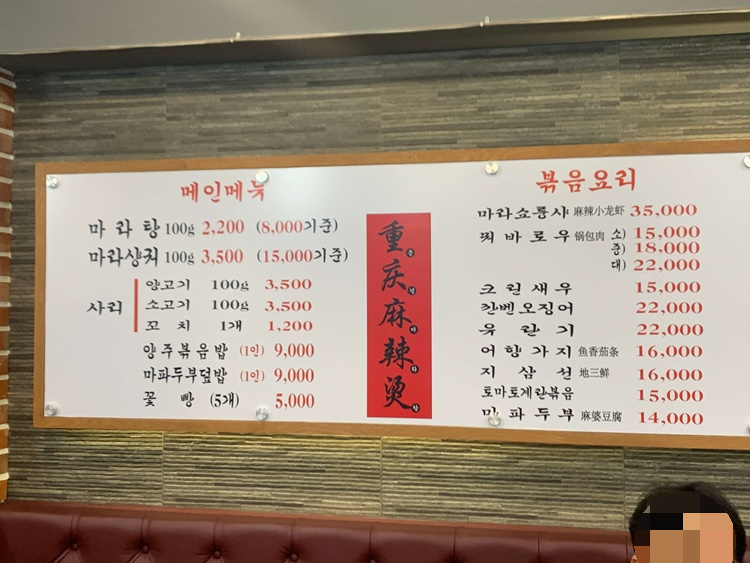 메인메뉴
마라탕 100g 2,200 (8,000기준)
마라샹궈 100g 3,500 (15,000기준)
사리
양고기 100g 3,500
소고기 100g 3,500
꼬치 1개 1,200
양주볶음밥 (1인) 9,000
마파두부덮밥 (1인) 9,000
꽃빵 (5개) 5,000
重庆麻辣烫
중경마라탕
볶음요리
마라쇼룽샤 麻辣小龙虾 35,000
꿔바로우 锅包肉 소) 15,000
중) 18,000
대) 22,000
크림새우 15,000
깐벤오징어 22,000
유린기 22,000
어향가지 鱼香茄条 16,000
지삼선 地三鲜 16,000
토마토계란볶음 15,000
마파두부 麻婆豆腐 14,000